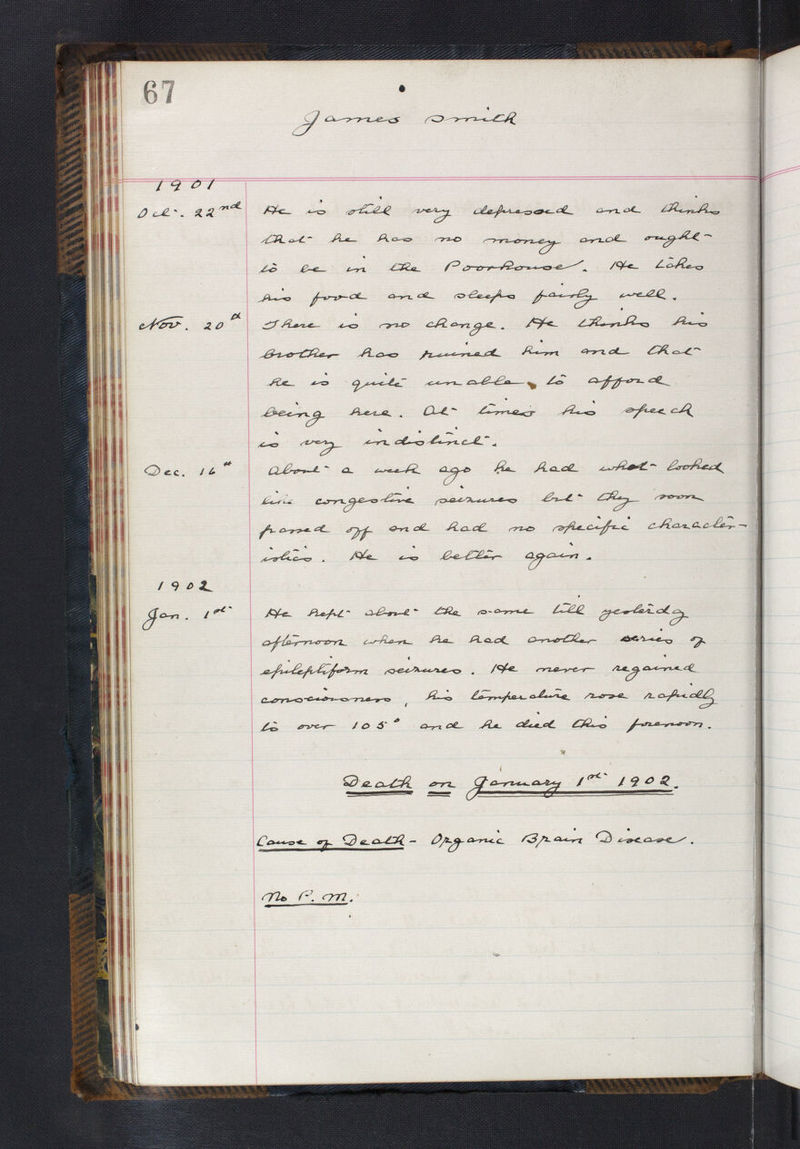 67
James Smith
1901
Oct. 22nd He is still very depressed and thinks
that he has no money and ought
to be in the Poorhouse. He takes
his food and sleeps fairly well.
Nov. 20th There is no change. He thinks his
brother has ruined him and that
he is quite unable to afford
being here. At times his speech
is very indistinct.
Dec. 16th About a week ago he had what looked
like congestive seizures but they soon
passed off and had no specific character-
istics. He is better again.
1902
Jan. 1st He kept about the same till yesterday
afternoon when he had another series of
epileptiform seizures. He never regained
consciousness, his temperature rose rapidly
to over 105° and he died this forenoon.
Death on January 1st 1902.
Cause of Death - Organic Brain Disease.
No P.M.